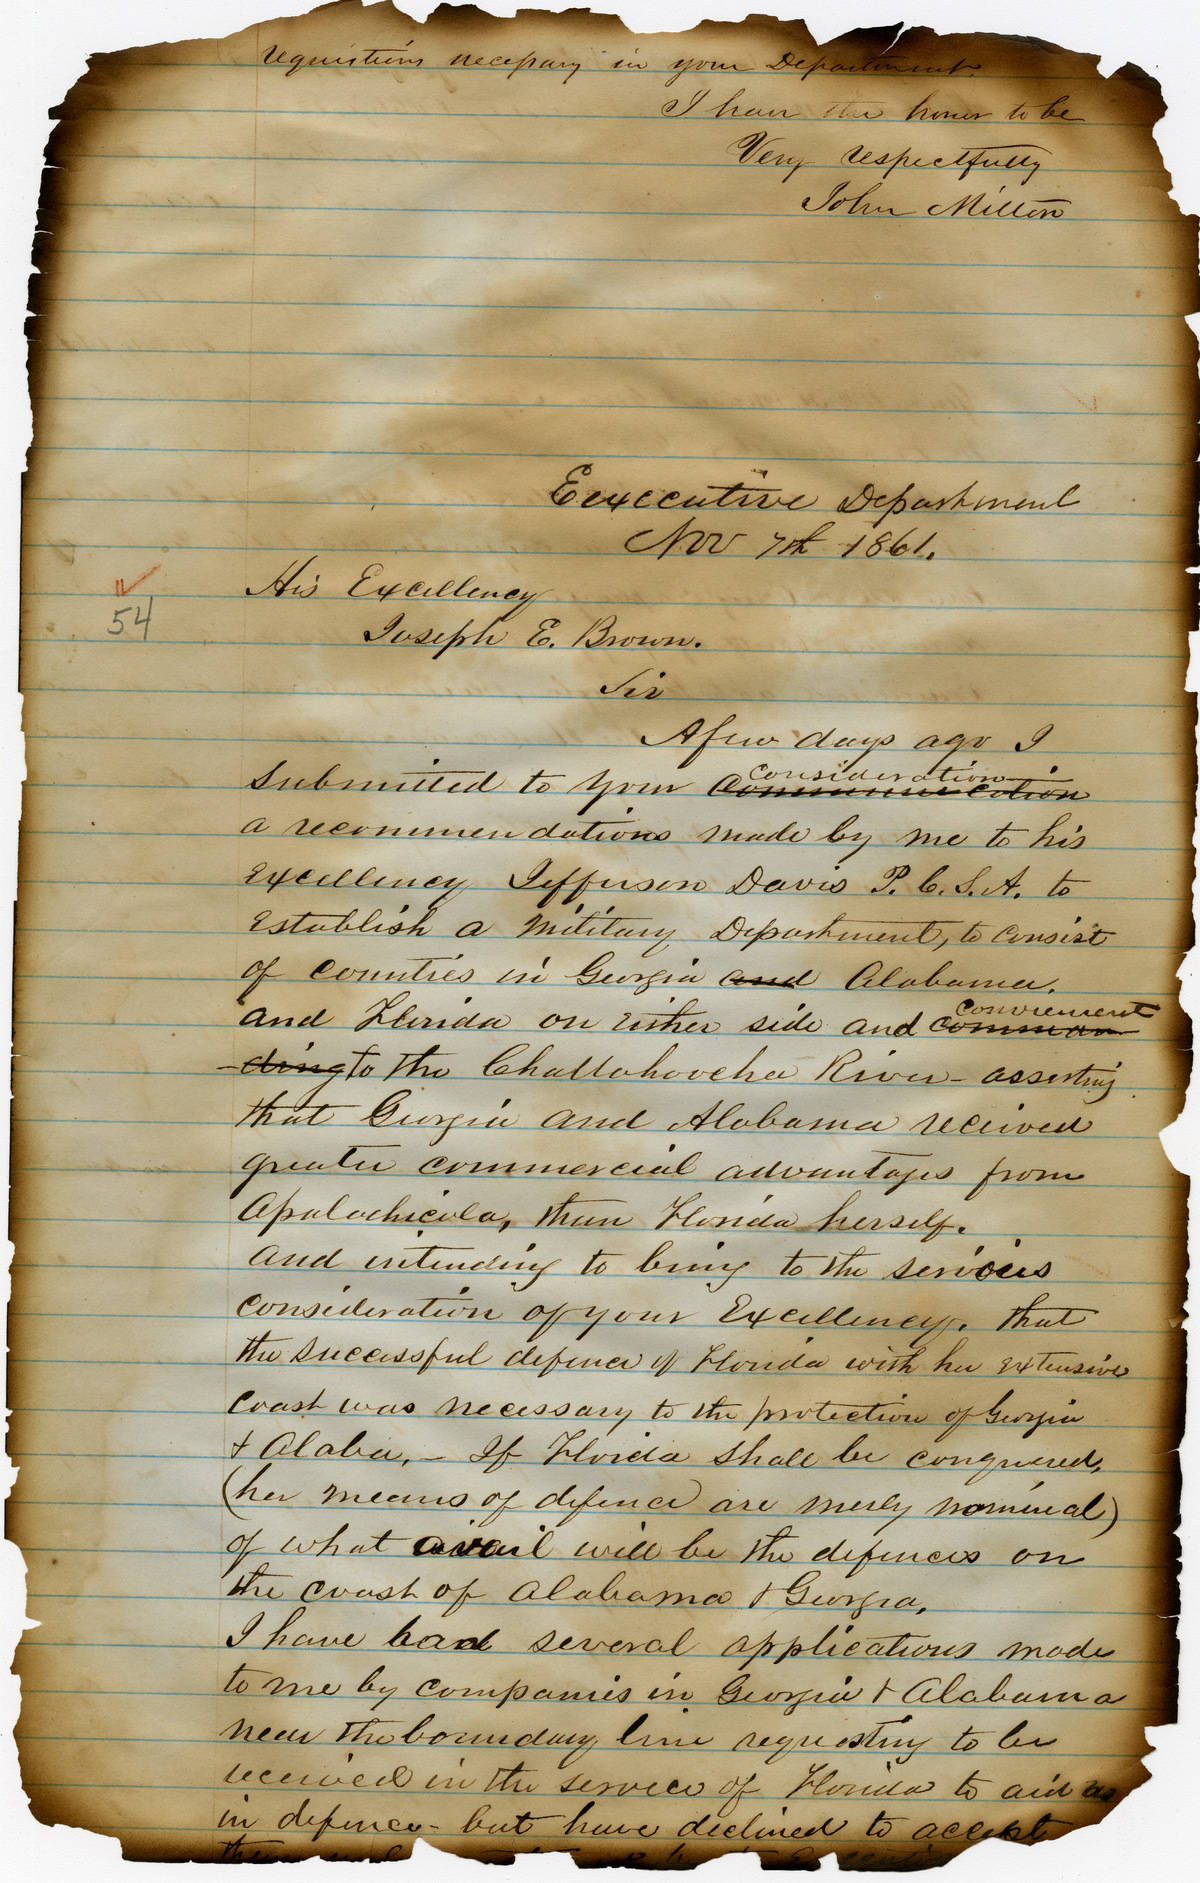 requisitions necessary in your Department.
I have the honor to be
Very respectfully
John Milton
Executive Department
Nov 7th 1861.
54
His Excellency
Joseph E. Brown.
Sir
A few days ago I
consideration
submitted to your communication
a recommendations made by me to his
Excellency Jefferson Davis P. C. S. A. to
establish a Military Department, to consist
of counties in Georgia and Alabama.
convenient
and Florida on either side and comman-
-ding to the Chattahoochea River - asserting
that Georgia and Alabama received
greater commercial advantages from
Apalachicola, than Florida herself.
And intending to bring to the serious
consideration of your Excellency. that
the successful defence of Florida with her extensive
coast was necessary to the protection of Georgia
& Alaba, - If Florida shall be conquered,
(her means of defence are merly nominal)
of what avail will be the defences on
the coast of Alabama & Georgia.
I have had several applications made
to me by companies in Georgia & Alabama
near the boundary line requesting to be
received in the service of Florida to aid us
in defence - but have declined to accept